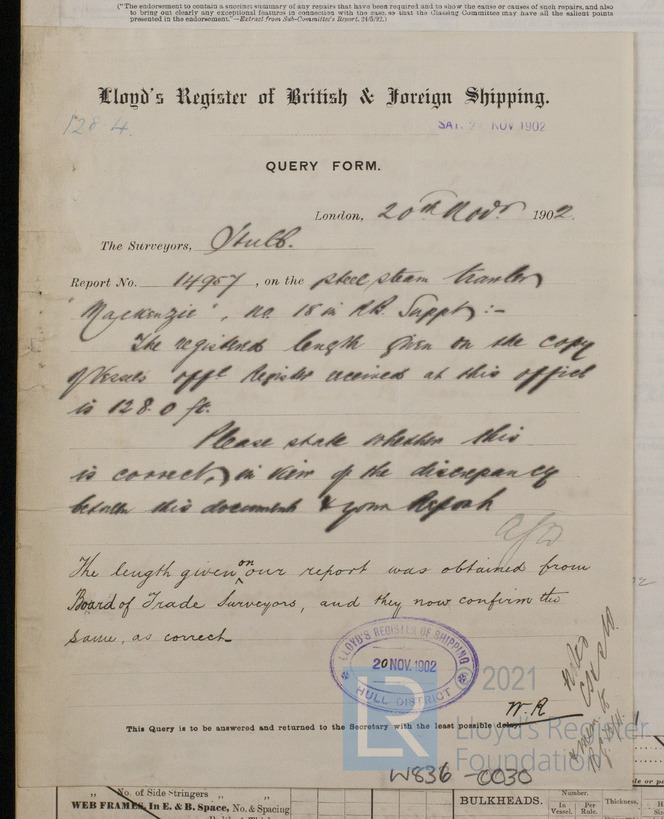 ("The endorsement to contain a succinct summary of any repairs that have been required and to show the cause or causes of such repairs, and also
to bring out clearly any exceptional features in connection with the case, so that the Classing Committee may have all the salient points
presented in the endorsement."—Extract from Sub-Committee's Report, 24/5/92.)
Lloyd's Register of British & Foreign Shipping.
128.4.
SAT. NOV 1902
QUERY FORM.
London, 20th Novr 1902.
The Surveyors, Hull.
Report No. 14957, on the steel steam trawler
"Mackenzie", no. 18 in R.B. Suppt:-
The registered length given on the copy
of Vessels offl. Register received at this office
is 128.0 ft.
Please state whether this
is correct, in view of the discrepancy
between this document & your Report
The length given on our report was obtained from
Board of Trade Surveyors, and they now confirm the
same, as correct
LLOYD'S REGISTER OF SHIPPING
20 NOV. 1902
HULL DISTRICT
W.R
Noted
This Query is to be answered and returned to the Secretary with the least possible delay.
LR
© 2021
Lloyd's Register
Foundation
W836-0030
" No. of Side Stringers "
WEB FRAMES, In E. & B. Space, No. & Spacing
BULKHEADS.
Number.
In Vessel.
Per Rule.
Thickness.